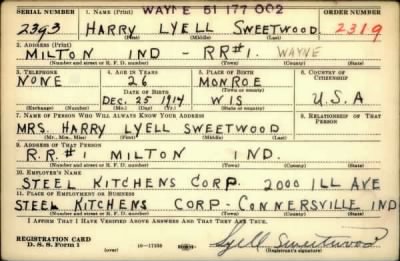 WAYNE 61 177 002
SERIAL NUMBER 1. NAME (Print) ORDER NUMBER
2393 HARRY LYELL SWEETWOOD 2319
(First) (Middle) (Last)
2. ADDRESS (Print)
MILTON IND - RR#1. WAYNE
(Number and street or R. F. D. number) (Town) (County) (State)
3. TELEPHONE 4. AGE IN YEARS 5. PLACE OF BIRTH 6. COUNTRY OF CITIZENSHIP
NONE 26 MONROE
DATE OF BIRTH
DEC. 25 1914 WIS U.S.A
(Exchange) (Number) (Mo.) (Day) (Yr.) (State or country)
7. NAME OF PERSON WHO WILL ALWAYS KNOW YOUR ADDRESS 8. RELATIONSHIP OF THAT PERSON
MRS. HARRY LYELL SWEETWOOD
(Mr., Mrs., Miss) (First) (Middle) (Last)
9. ADDRESS OF THAT PERSON
R.R.#1 MILTON IND.
(Number and street or R. F. D. number) (Town) (County) (State)
10. EMPLOYER'S NAME
STEEL KITCHENS CORP. 2000 ILL AVE
11. PLACE OF EMPLOYMENT OR BUSINESS
STEEL KITCHENS CORP - CONNERSVILLE IND
(Number and street or R. F. D. number) (Town) (County) (State)
I AFFIRM THAT I HAVE VERIFIED ABOVE ANSWERS AND THAT THEY ARE TRUE.
REGISTRATION CARD
D. S. S. Form 1 Lyell Sweetwood
(Registrant's signature)